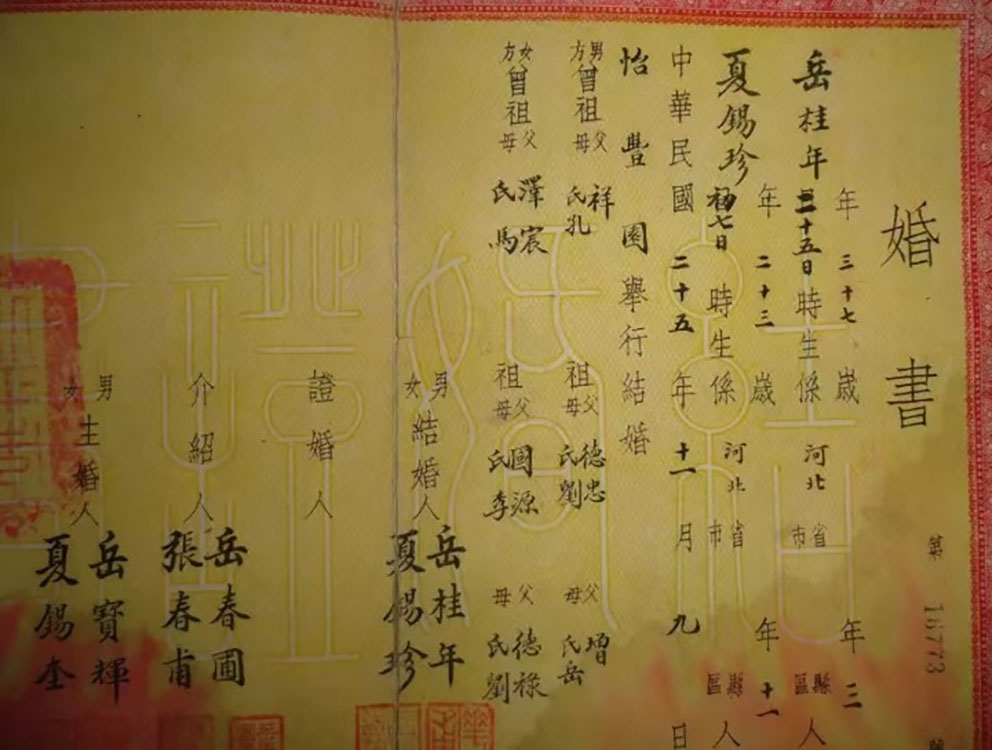 婚書
第 16773
年三十七歲 年三
岳桂年 十五日時生係河北省市縣區人
年二十三歲 年十一
夏錫珍 初七日時生係河北省市縣區人
中華民國二十五年十一月九日
怡豐園舉行結婚
男方曾祖父母 祥 氏孔 祖父母 德忠 氏劉 父母 增 氏岳
女方曾祖父母 澤宸 氏馬 祖父母 國源 氏李 父母 德祿 氏劉
男女結婚人 岳桂年 夏錫珍
證婚人
介紹人 岳春圃 張春甫
男女主婚人 岳寶輝 夏錫奎